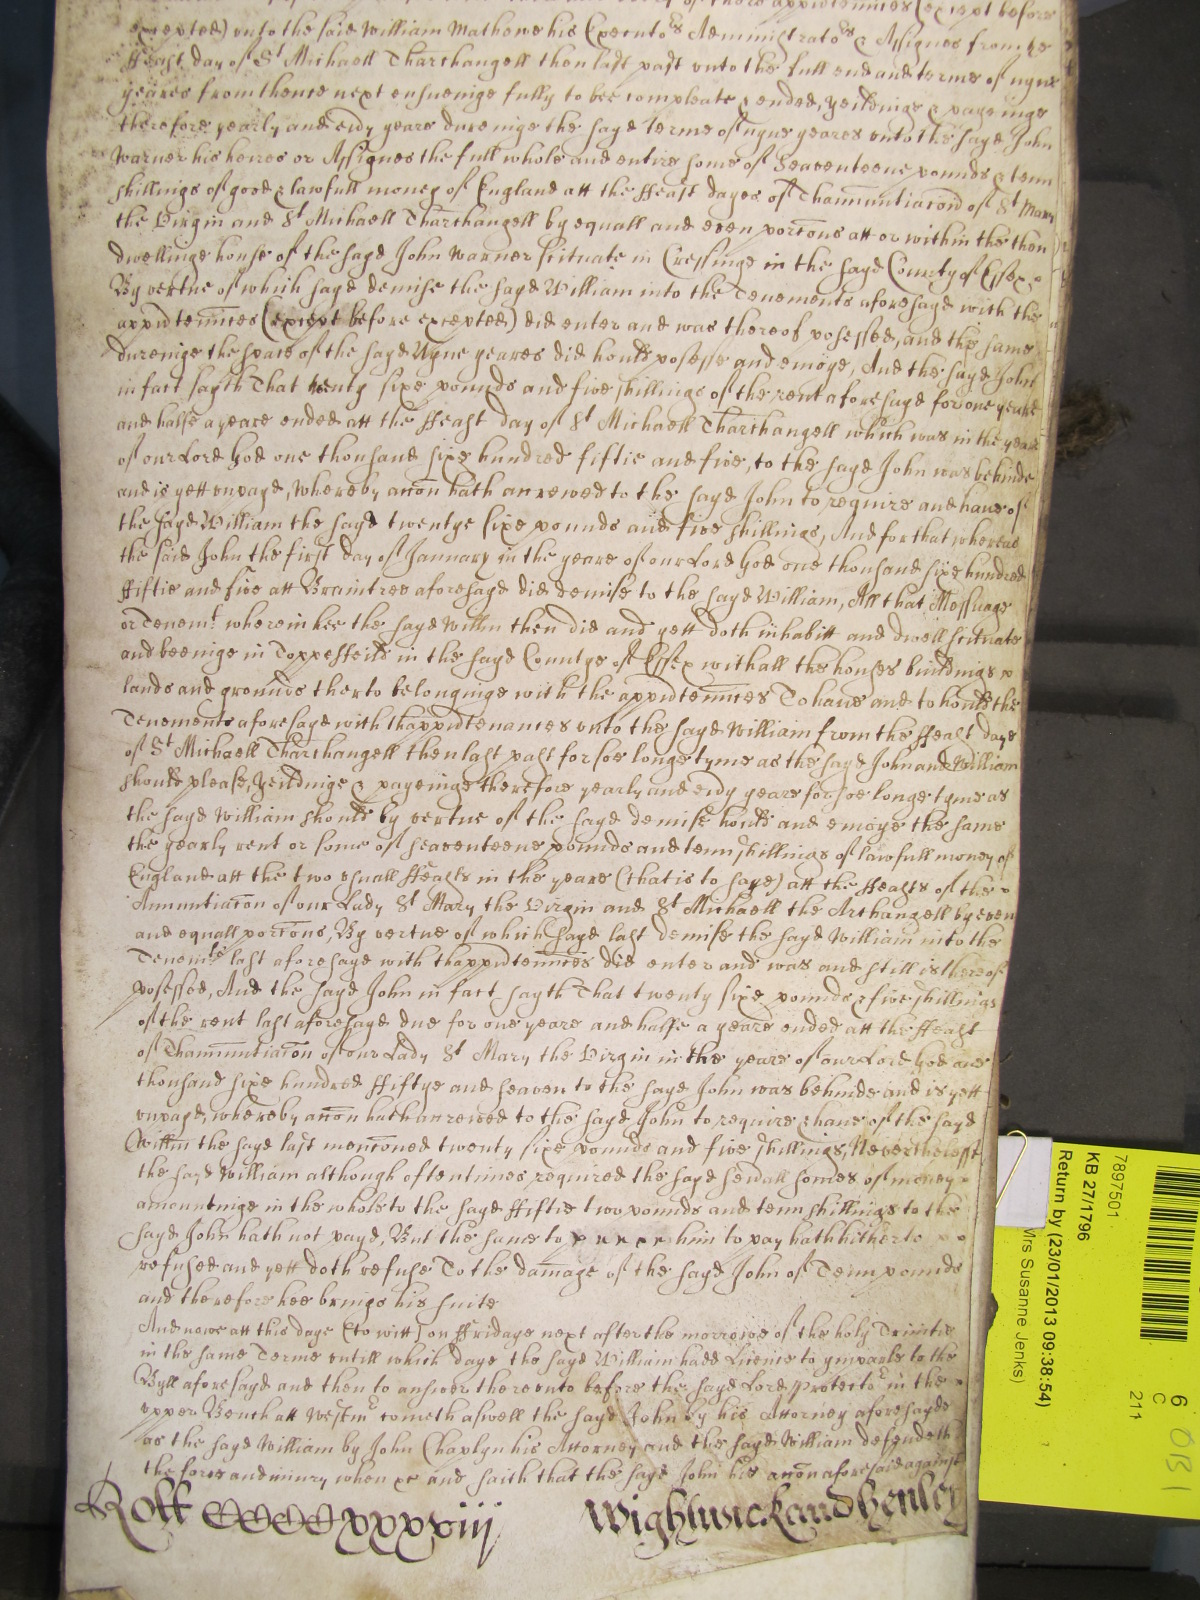 excepted) unto the said William Mathewe his Executors Administrators & Assignes from the
ffeast day of St Michaell Tharchangell then last past unto the full end and terme of nyne
yeares from thence next ensueinge fully to bee compleate & ended, yeildinge & payeinge
therefore yearly and evry yeare dureinge the sayd Terme of nyne yeares unto the sayd John
Warner his heires or Assignes the full whole and entire some of Seaventeene pounds & tenn
shillings of good & lawfull money of England att the ffeast dayes of Thannuntiacōn of St Mary
the Virgin and St Michaell Tharchangell by equall and even porcōns att or within the then
dwellinge house of the sayd John Warner scituate in Cressinge in the sayd County of Essex,
By vertue of which sayd demise the sayd William into the Tenements aforesayd with the
appurtennces (except before excepted) did enter and was thereof possessed, and the same
dureinge the space of the sayd Nyne yeares did hould possesse and enioye, And the sayd John
in fact sayth That twenty sixe pounds and five shillings of the rent aforesayd for one yeare
and halfe a yeare ended att the ffeast day of St Michaell Tharchangell which was in the yeare
of our Lord God one thousand sixe hundred fiftie and five, to the sayd John was behinde
and is yett unpayd, whereby accōn hath accrewed to the sayd John to require and have of
the sayd William the sayd twentye sixe pounds and five shillings, And for that whereas
the said John the first day of January in the yeare of our Lord God one thousand sixe hundred
ffiftie and five att Braintree aforesayd did demise to the sayd William, All that Messuage
or Tenemt wherein hee the sayd Willm then did and yett doth inhabitt and dwell scituate
and beeinge in Toppesfeild in the sayd Countye of Essex with all the houses buildings
lands and grounds therto belonginge with the appurtennces To have and to hould the
Tenements aforesayd with thappurtenances unto the sayd William from the ffeast daye
of St Michaell Tharchangell then last past for soe longe tyme as the sayd John and William
should please, yeildinge & payeinge therefore yearly and evry yeare for soe longe tyme as
the sayd William should by vertue of the sayd demise hould and enioye the same
the yearly rent or some of seaventeene pounds and tenn shillings of lawfull money of
England att the two usuall ffeasts in the yeare (that is to saye) att the ffeasts of the
Annuntiacōn of our Lady St Mary the Virgin and St Michaell the Archangell by even
and equall porcōns, By vertue of which sayd last demise the sayd William into the
Tenemts last aforesayd with thappurtennces did enter and was and still is thereof
possessed, And the sayd John in fact sayth That twenty sixe pounds & five shillings
of the rent last aforesayd due for one yeare and halfe a yeare ended att the ffeast
of Thannuntiacōn of our Lady St Mary the Virgin in the yeare of our Lord God one
thousand sixe hundred ffiftye and seaven to the sayd John was behinde and is yett
unpayd, whereby accōn hath accrewed to the sayd John to require & have of the sayd
Willm the sayd last mencōned twenty sixe pounds and five shillings, Neverthelesse
the sayd William although oftentimes required the sayd sevall somes of money
amountinge in the whole to the sayd ffiftie two pounds and tenn shillings to the
sayd John hath not payd, But the same to him to pay hath hitherto
refused and yett doth refuse To the damage of the sayd John of Tenn pounds
and therefore hee brings his suite
And nowe att this daye (to witt) on ffridaye next after the morrowe of the holy Trinitie
in the same Terme untill which daye the sayd William hadd licence to imparle to the
Byll aforesayd and then to answer thereunto before the sayd Lord Protector in the
upper Bench att Westmr cometh aswell the sayd John by his Attorney aforesayd
as the sayd William by John Chaplyn his Attorney and the sayd William defendeth
the force and iniury when &c and saith that the sayd John his accōn aforesaid against
Roll CCCCxxxxiij Wightwick and Henley
7897501
KB 27/1796
Return by (23/01/2013 09:38:54)
Mrs Susanne Jenks)
6
C
211